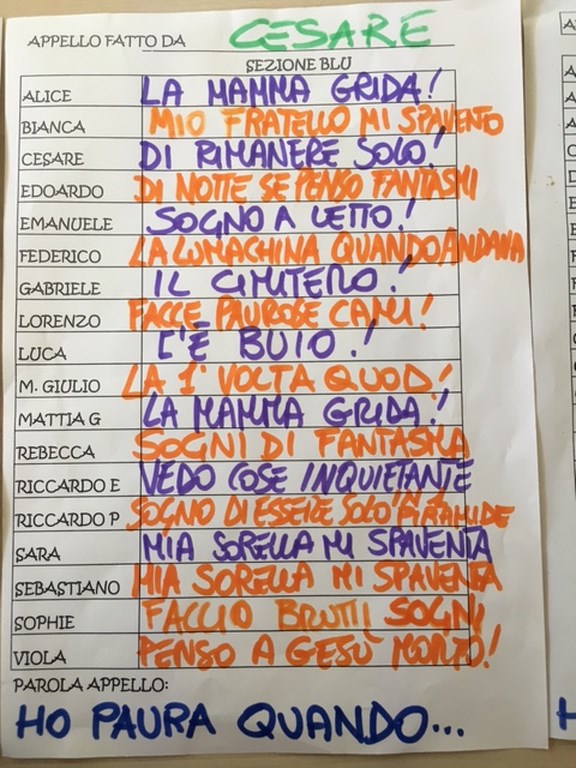 APPELLO FATTO DA CESARE
SEZIONE BLU
ALICE LA MAMMA GRIDA!
BIANCA MIO FRATELLO MI SPAVENTO
CESARE DI RIMANERE SOLO!
EDOARDO DI NOTTE SE PENSO FANTASMI
EMANUELE SOGNO A LETTO!
FEDERICO LA LUMACHINA QUANDO ANDAVA
GABRIELE IL CIMITERO!
LORENZO FACCE PAUROSE CANI!
LUCA C'È BUIO!
M. GIULIO LA 1° VOLTA QUOD!
MATTIA G LA MAMMA GRIDA!
REBECCA SOGNI DI FANTASMA
RICCARDO E VEDO COSE INQUIETANTE
RICCARDO P SOGNO DI ESSERE SOLO IN 1 PIRAMIDE
SARA MIA SORELLA MI SPAVENTA
SEBASTIANO MIA SORELLA MI SPAVENTA
SOPHIE FACCIO BRUTTI SOGNI
VIOLA PENSO A GESÙ MORTO!
PAROLA APPELLO:
HO PAURA QUANDO...